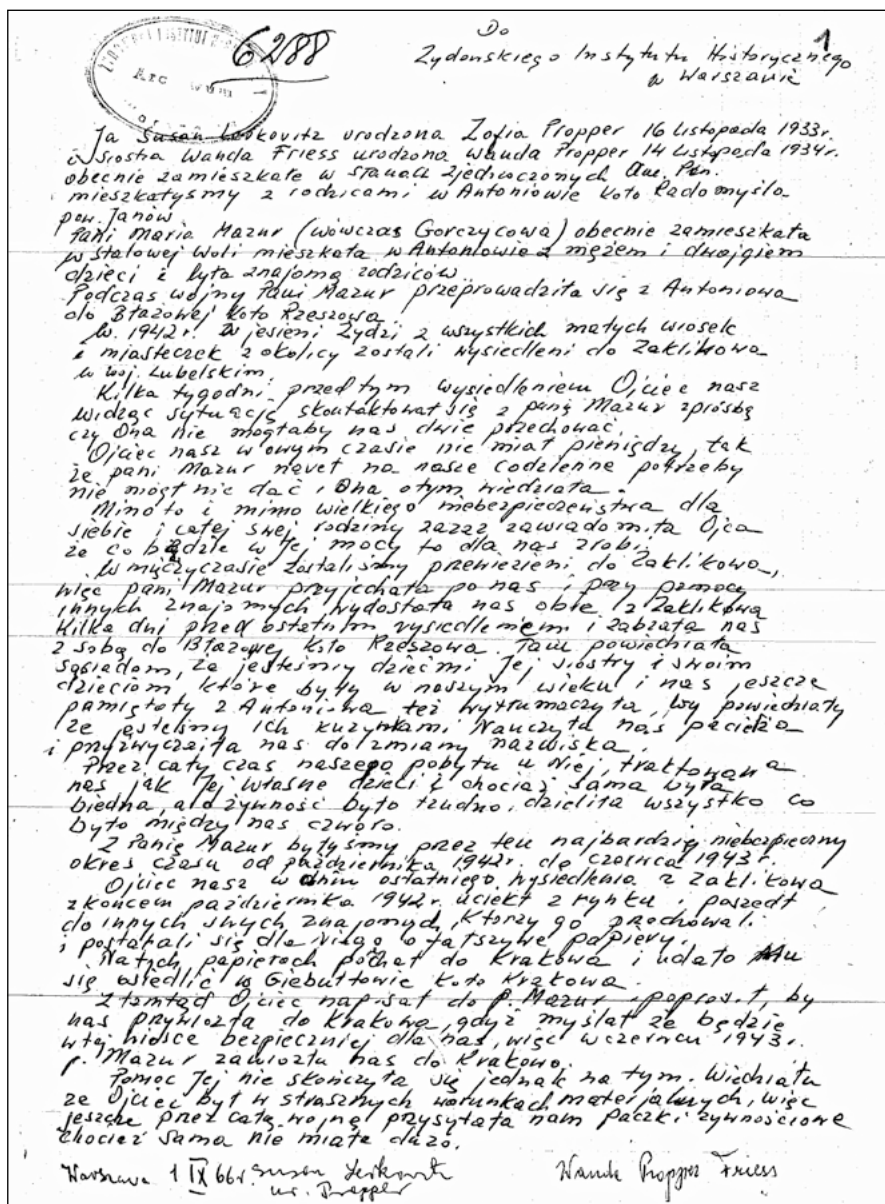 6288
1
Do
Żydowskiego Instytutu Historycznego
w Warszawie
Ja Susan Lerkovitz urodzona Zofia Propper 16 Listopada 1933r.
i siostra Wanda Friess urodzona Wanda Propper 14 Listopada 1934r.
obecnie zamieszkałe w Stanach Zjednoczonych Am. Pón.
mieszkałyśmy z rodzicami w Antoniowie koło Radomyśla
pow. Janów
Pani Maria Mazur (wówczas Gorczycowa) obecnie zamieszkała
w Stalowej Woli mieszkała w Antoniowie z mężem i dwojgiem
dzieci i była znajomą rodziców.
Podczas wojny Pani Mazur przeprowadziła się z Antoniowa
do Błażowej koło Rzeszowa.
W. 1942r. w jesieni Żydzi z wszystkich małych wiosek
i miasteczek z okolicy zostali wysiedleni do Zaklikowa
w woj. Lubelskim.
Kilka tygodni przed tym wysiedleniem Ojciec nasz
widząc sytuację skontaktował się z panią Mazur z prośbą
czy Ona nie mogłaby nas dwie przechować.
Ojciec nasz w owym czasie nie miał pieniędzy, tak
że pani Mazur nawet na nasze codzienne potrzeby
nie mógł nic dać i Ona o tym wiedziała.
Mimo to i mimo wielkiego niebezpieczeństwa dla
siebie i całej swej rodziny zaraz zawiadomiła Ojca
że co będzie w Jej mocy to dla nas zrobi.
W międzyczasie zostaliśmy przewiezieni do Zaklikowa,
więc pani Mazur przyjechała po nas i przy pomocy
innych znajomych wydostała nas obie z Zaklikowa
kilka dni przed ostatnim wysiedleniem i zabrała nas
z sobą do Błażowej koło Rzeszowa. Tam powiedziała
sąsiadom, że jesteśmy dziećmi Jej siostry i swoim
dzieciom które były w naszym wieku i nas jeszcze
pamiętały z Antoniowa też wytłumaczyła, by powiedziały
że jesteśmy ich kuzynkami. Nauczyła nas pacierza
i przyzwyczaiła nas do zmiany nazwiska.
Przez cały czas naszego pobytu u Niej, traktowana
nas jak Jej własne dzieci i chociaż sama była
biedna, a o żywność było trudno, dzieliła wszystko co
było między nas czworo.
Z Panią Mazur byłyśmy przez ten najbardziej niebezpieczny
okres czasu od października 1942r. do czerwca 1943r.
Ojciec nasz w dniu ostatniego wysiedlenia z Zaklikowa
z końcem października 1942r. uciekł z rynku i poszedł
do innych swych znajomych, którzy go przechowali
i postarali się dla niego o fałszywe papiery.
Na tych papierach pojechał do Krakowa i udało Mu
się osiedlić w Giebułtowie koło Krakowa.
Z tamtąd Ojciec napisał do p. Mazur i poprosił, by
nas przywiozła do Krakowa, gdyż myślał że będzie
w tej miejsce bezpieczniej dla nas, więc w czerwcu 1943r.
p. Mazur zawiozła nas do Krakowa.
Pomoc Jej nie skończyła się jednak na tym. Wiedziała
że Ojciec był w strasznych warunkach materjalnych, więc
jeszcze przez całą wojnę przysyłała nam paczki żywnościowe
chociaż sama nie miała dużo.
Warszawa 1 IX 66r. Susan Lerkovitz Wanda Propper Friess
ur. Propper